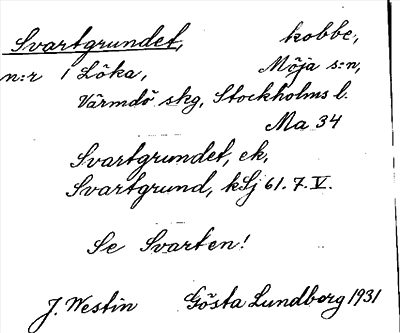 Svartgrundet, kobbe,
n:r 1 Löka, Möja s:n,
Värmdö skg, Stockholms l.
Ma 34
Svartgrundet, ek,
Svartgrund, kSj 61.7.V.
Se Svarten!
J. Westin Gösta Lundberg 1931